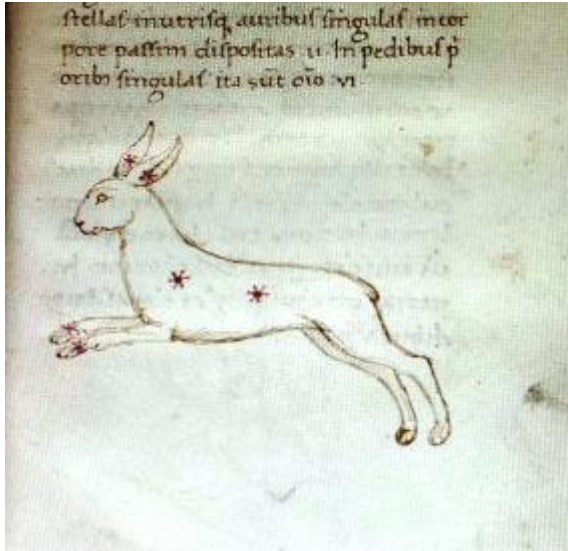 stellas in utrisq auribus singulas in cor
pore passim dispositas ii In pedibus p̄
orib; singulas ita sūt oīo vi